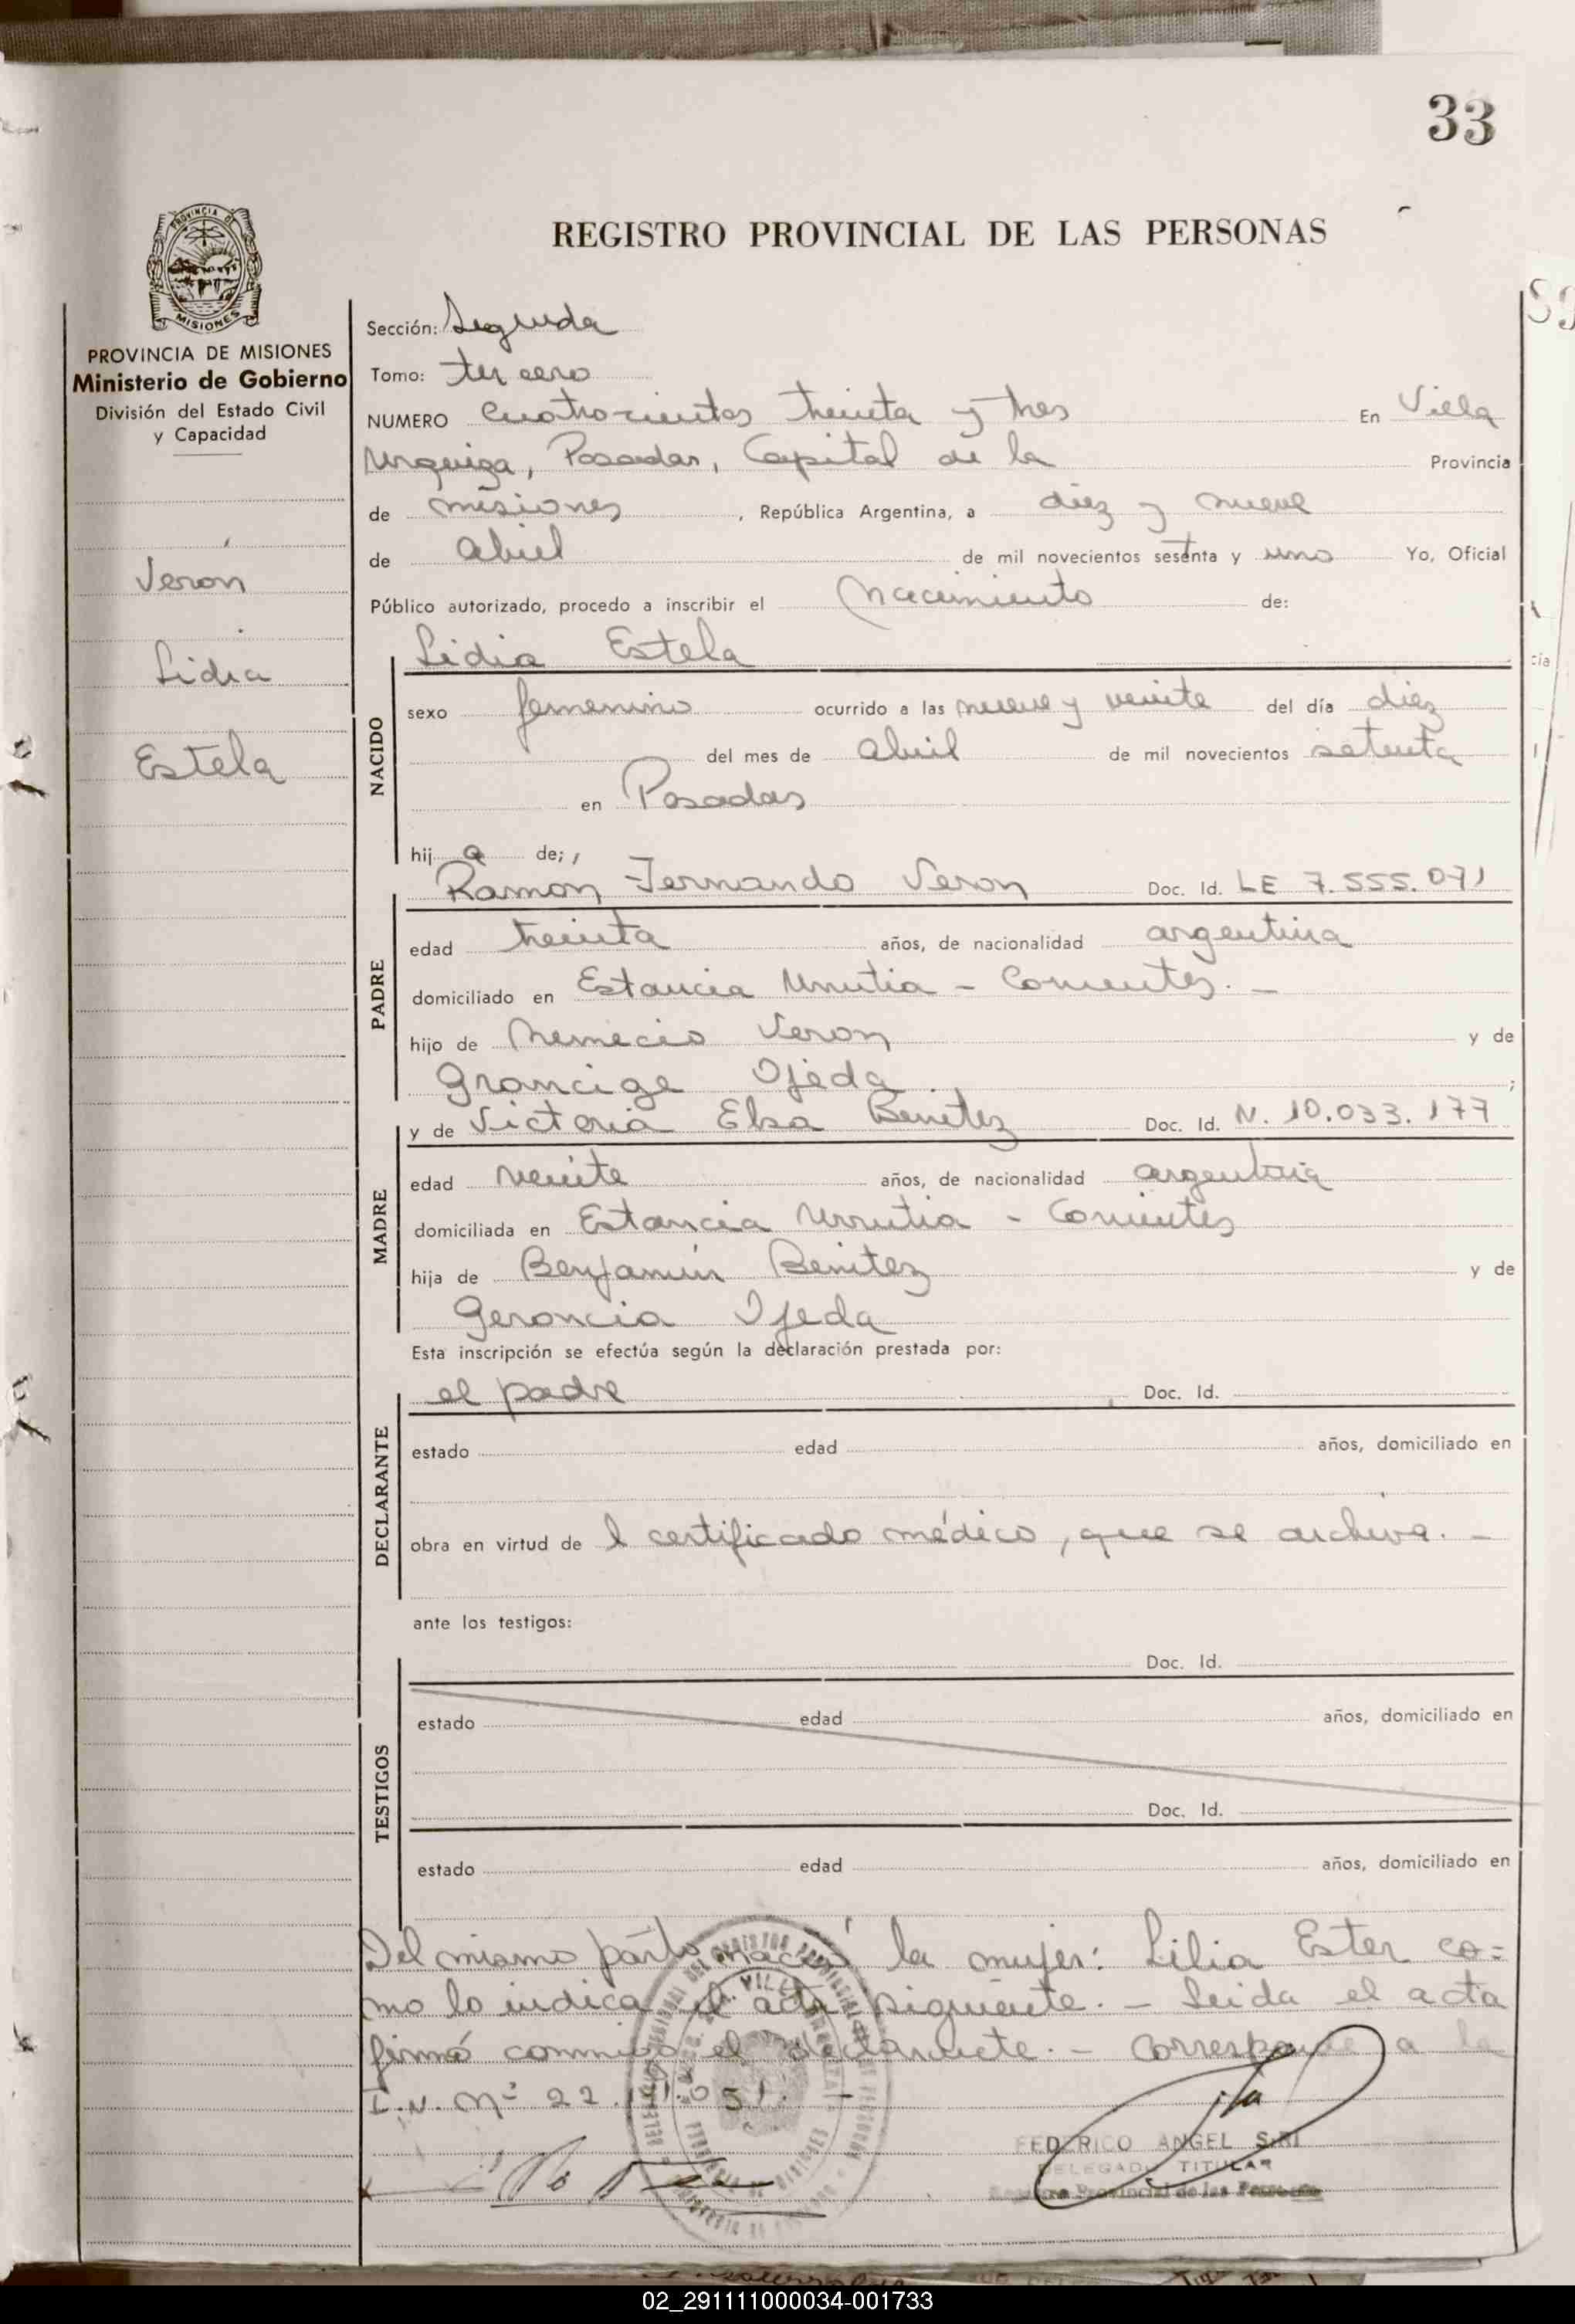 33
REGISTRO PROVINCIAL DE LAS PERSONAS
PROVINCIA DE MISIONES
PROVINCIA DE MISIONES
Ministerio de Gobierno
División del Estado Civil
y Capacidad
Veron
Lidia
Estela
Sección: Segunda
Tomo: tercero
NUMERO cuatrocientos treinta y tres En Villa
Urquiza, Posadas, Capital de la Provincia
de misiones, República Argentina, a diez y nueve
de abril de mil novecientos sesenta y uno Yo, Oficial
Público autorizado, procedo a inscribir el nacimiento de:
Lidia Estela
NACIDO
sexo femenino ocurrido a las nueve y veinte del día diez
del mes de abril de mil novecientos setenta
en Posadas
hij a de;
Ramon Fernando Veron Doc. Id. LE 7.555.071
PADRE
edad treinta años, de nacionalidad argentina
domiciliado en Estancia Urrutia - Corrientes. -
hijo de Nemecio Veron y de
Grancige Ojeda.
y de Victoria Elsa Benitez Doc. Id. N. 10.033.177
MADRE
edad veinte años, de nacionalidad argentina
domiciliada en Estancia Urrutia - Corrientes
hija de Benjamín Benitez y de
Geroncia Ojeda
Esta inscripción se efectúa según la declaración prestada por:
el padre Doc. Id.
DECLARANTE
estado edad años, domiciliado en
obra en virtud de l certificado médico, que se archiva. -
ante los testigos:
Doc. Id.
TESTIGOS
estado edad años, domiciliado en
Doc. Id.
estado edad años, domiciliado en
Del mismo parto nació la mujer: Lilia Ester co=
mo lo indica el acta siguiente. - Leida el acta
firmó conmigo el declarante. - Corresponde a la
I.N. Nº 22.111.051. -
FEDERICO ANGEL SIRI
DELEGADO TITULAR
Registro Provincial de las Personas
02_291111000034-001733